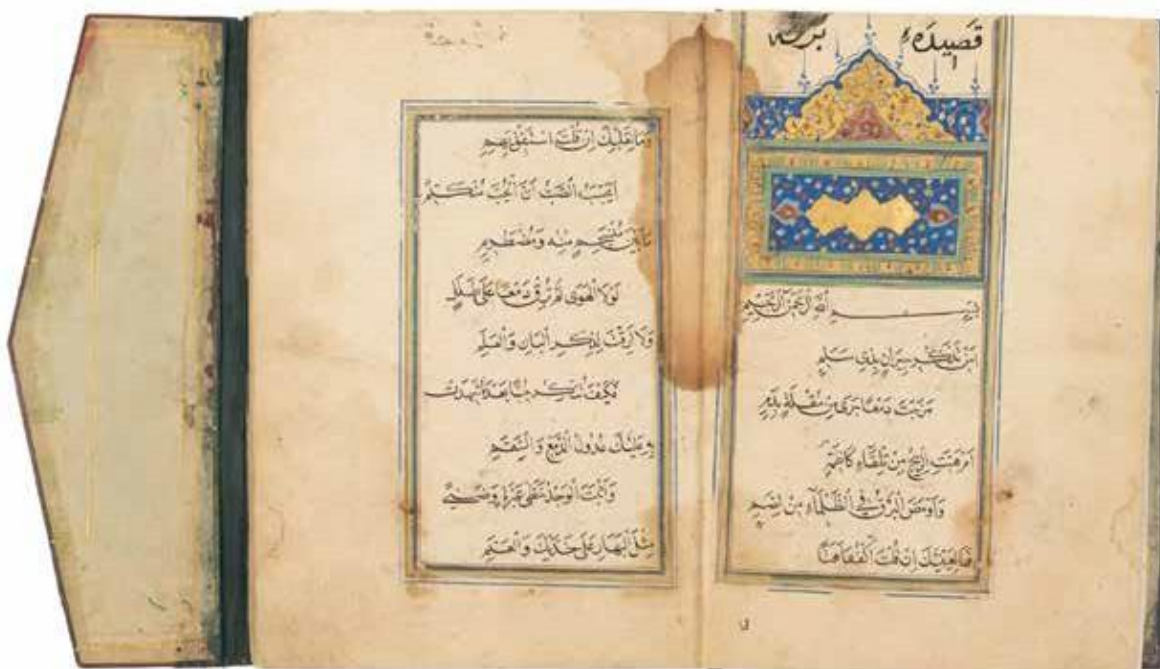 قصيدهٔ برده
بسم الله الرحمن الرحيم
امن تذكر جيران بذى سلم
مزجت دمعا جرى من مقلة بدم
ام هبت الريح من تلقاء كاظمة
واومض البرق في الظلماء من اضم
فما لعينيك ان قلت اكففا همتا
وما لقلبك ان قلت استفق يهم
ايحسب الصب ان الحب منكتم
ما بين منسجم منه ومضطرم
لولا الهوى لم ترق دمعا على طلل
ولا ارقت لذكر البان والعلم
فكيف تنكر حبا بعد ما شهدت
به عليك عدول الدمع والسقم
واثبت الوجد خطى عبرة وضنى
مثل البهار على خديك والعنم